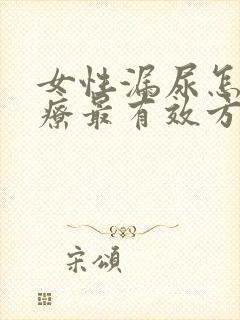 女性漏尿怎
療最有效方
宋頌